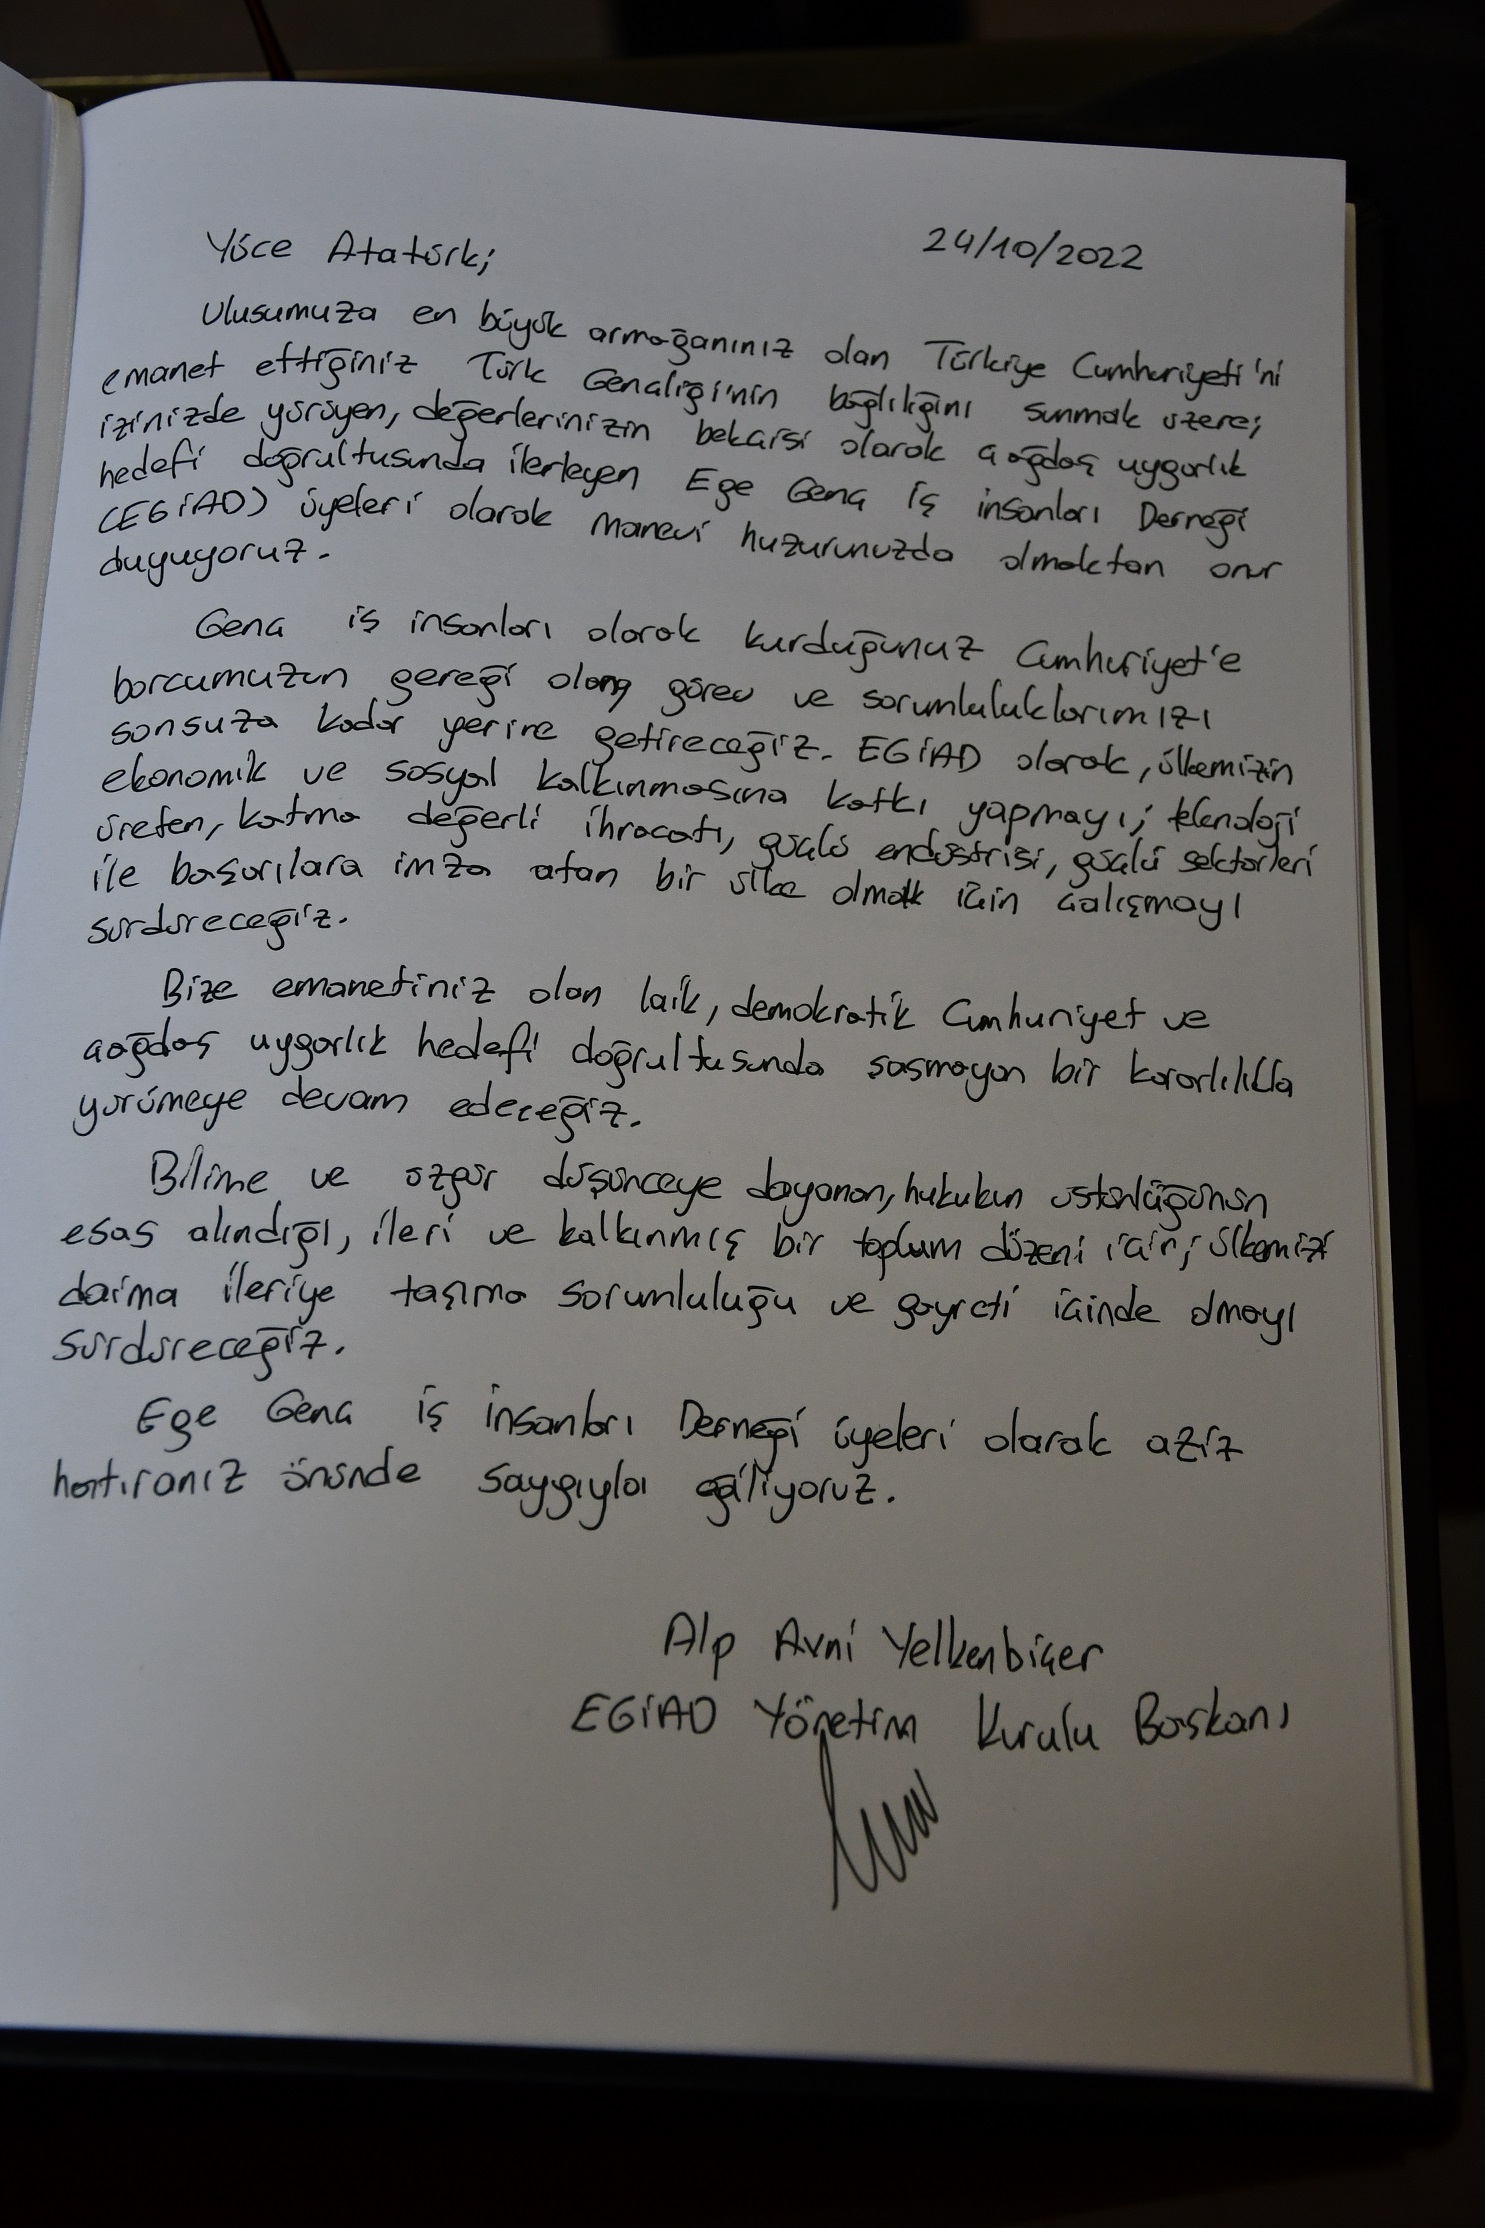 Yüce Atatürk; 24/10/2022
Ulusumuza en büyük armağanınız olan Türkiye Cumhuriyeti'ni
emanet ettiğiniz Türk Gençliği'nin bağlılığını sunmak üzere;
izinizde yürüyen, değerlerinizin bekçisi olarak çağdaş uygarlık
hedefi doğrultusunda ilerleyen Ege Genç İş insanları Derneği
(EGİAD) üyeleri olarak manevi huzurunuzda olmaktan onur
duyuyoruz.
Genç iş insanları olarak kurduğunuz Cumhuriyet'e
borcumuzun gereği olan görev ve sorumluluklarımızı
sonsuza kadar yerine getireceğiz. EGİAD olarak, ülkemizin
ekonomik ve sosyal kalkınmasına katkı yapmayı; teknoloji
üreten, katma değerli ihracatı, güçlü endüstrisi, güçlü sektörleri
ile başarılara imza atan bir ülke olmak için çalışmayı
sürdüreceğiz.
Bize emanetiniz olan laik, demokratik Cumhuriyet ve
çağdaş uygarlık hedefi doğrultusunda şaşmayan bir kararlılıkla
yürümeye devam edeceğiz.
Bilime ve özgür düşünceye dayanan, hukukun üstünlüğünün
esas alındığı, ileri ve kalkınmış bir toplum düzeni için; ülkemizi
daima ileriye taşıma sorumluluğu ve gayreti içinde olmayı
sürdüreceğiz.
Ege Genç İş İnsanları Derneği üyeleri olarak aziz
hatıranız önünde saygıyla eğiliyoruz.
Alp Avni Yelkenbiçer
EGİAD Yönetim Kurulu Başkanı